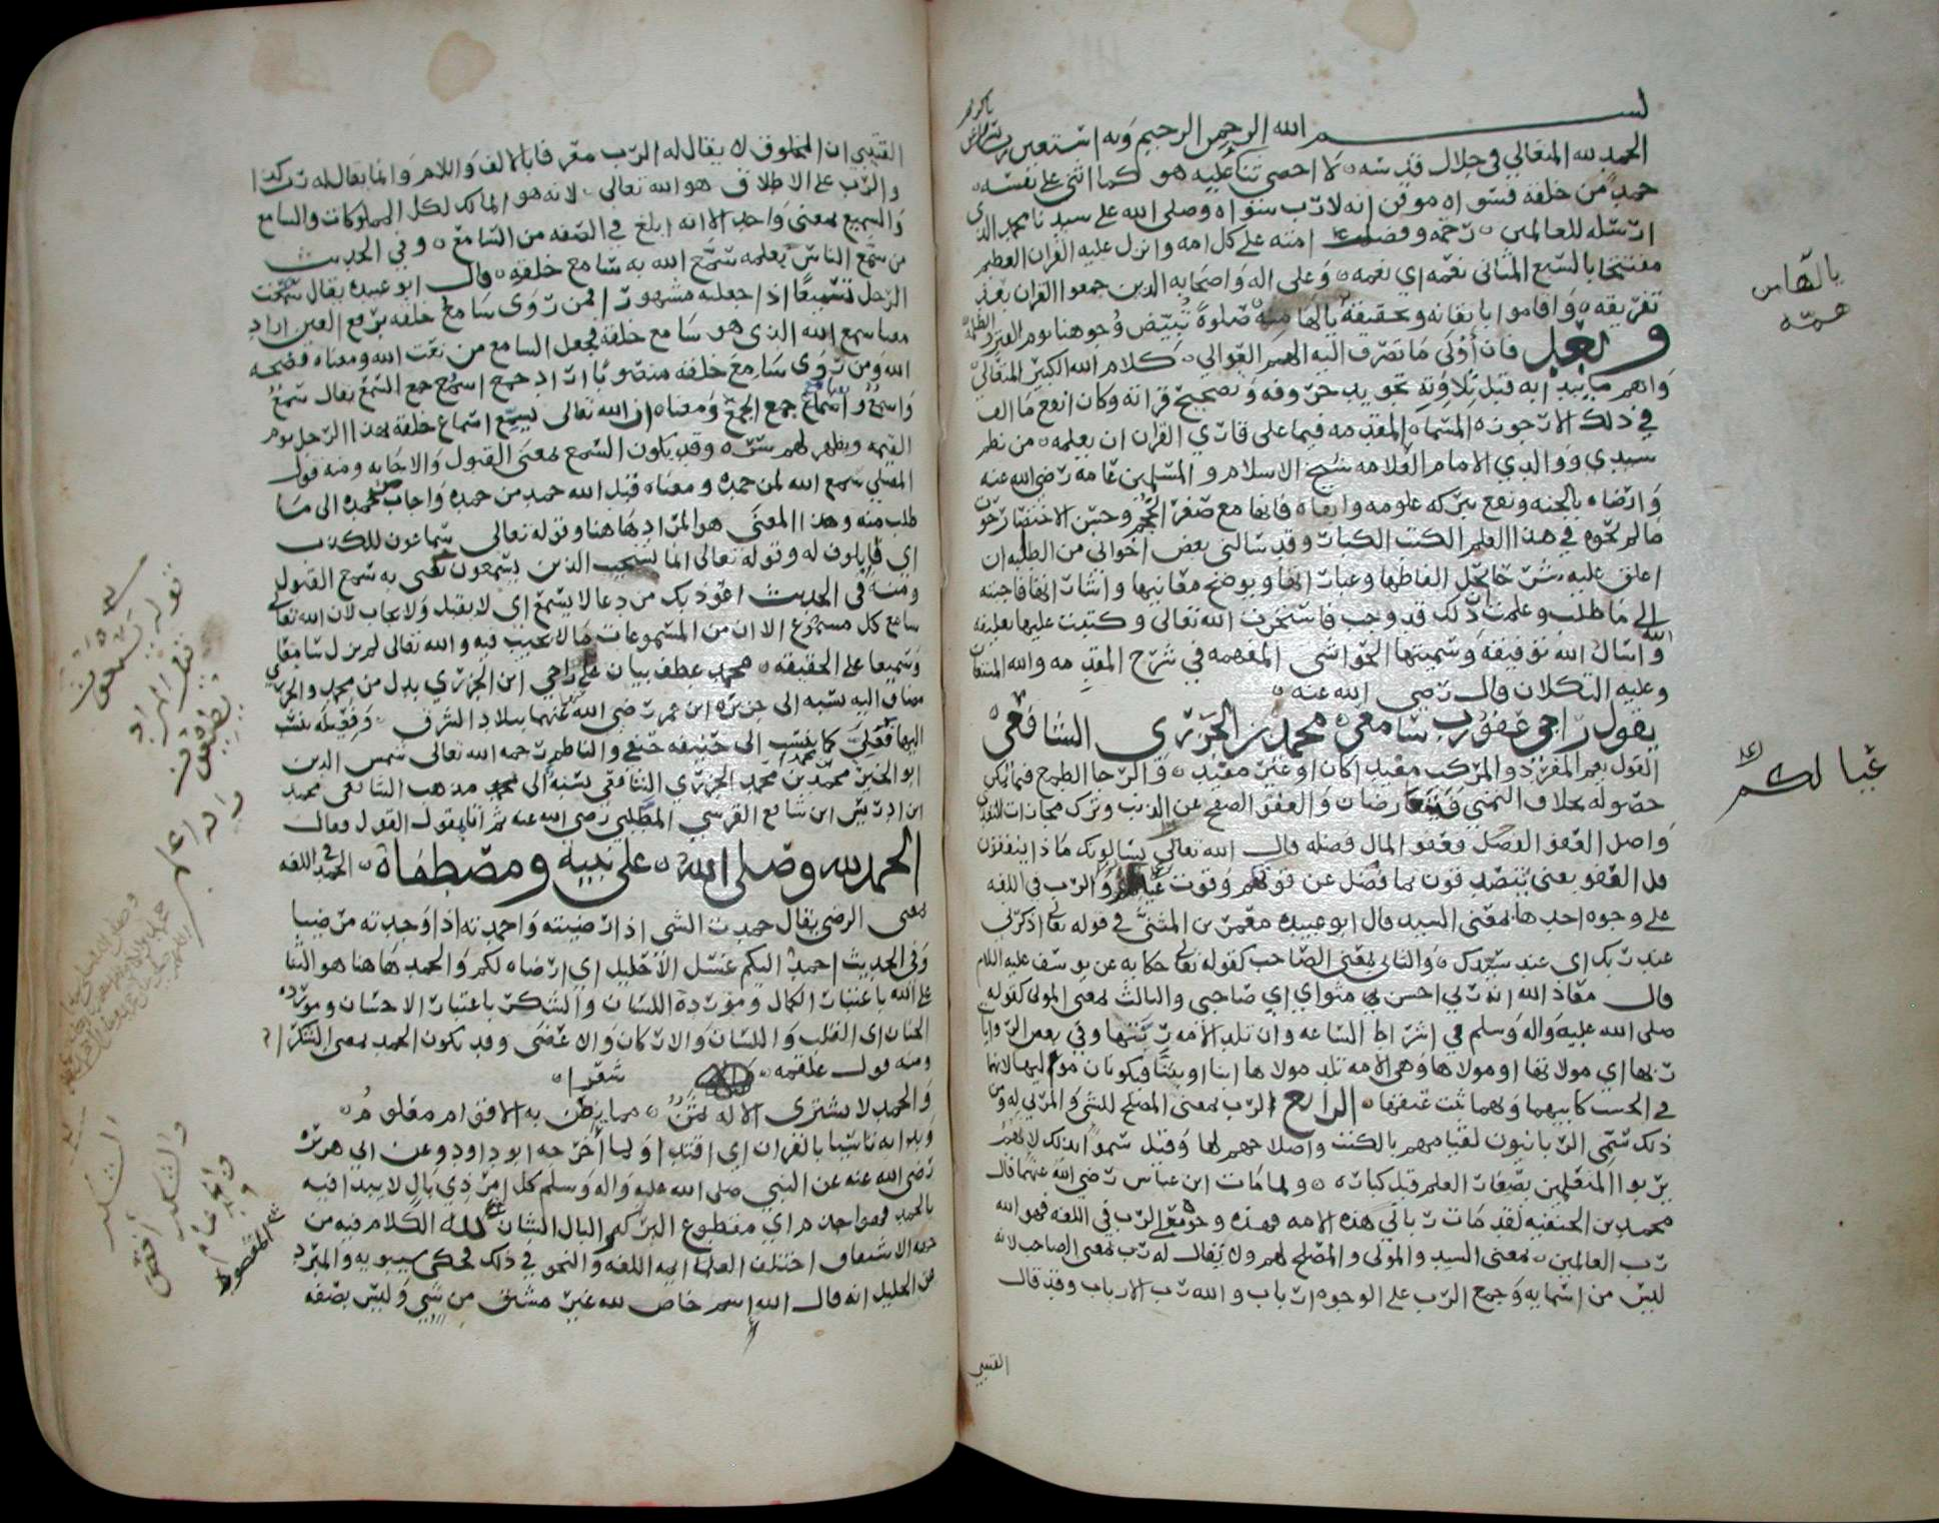 بسم الله الرحمن الرحيم وبه استعين
الحمد لله المتعالي في جلال قدسه لا احصي ثنا عليه هو كما اثنى على نفسه
حمد من خلقه فسواه موقن انه لا رب سواه وصلى الله على سيدنا محمد الذي
ارسله للعالمين رحمه وفضلت امته على كل امه وانزل عليه القران العظيم
مفتتحا بالسبع المثاني نعمه اي نعمه وعلى اله واصحابه الذين جمعوا القران بعد
تفريقه واقاموا باتقانه وتحقيقه يالها منه صلوة تبيض وجوهنا يوم القبر
وبعد فان أولى ما تصرف اليه الهمم العوالي كلام الله الكبير المتعالي
واهم ما يبدا به قبل تلاوته تجويد حروفه وتصحيح قراته وكان انفع ما الف
في ذلك الارجوزه المسماه المقدمه فيما على قاري القران ان يعلمه من نظم
سيدي ووالدي الامام العلامه شيخ الاسلام والمسلمين عامه رضي الله عنه
وارضاه بالجنه ونفع ببركه علومه وابقاه فانها مع صغر الحجم وحسن الاختصار حوت
ما لم تحوه في هذا العلم الكتب الكبار وقد سالني بعض اخواني من الطلبه ان
اعلق عليه شرحا يحل الفاظها وعباراتها ويوضح معانيها واشاراتها فاجبته
الى ما طلب وعلمت ذلك قد وجب فاستخرت الله تعالى وكتبت عليها تعليقه
واسال الله توفيقه وسميتها الحواشي المفهمه في شرح المقدمه والله المستعان
وعليه التكلان قال رضي الله عنه
يقول راجي عفو رب سامع محمد بن الجزري الشافعي
القول يعم المفرد والمركب مفيد اكان او غير مفيد والرجا الطمع فيما يمكن
حصوله بخلاف التمني والعفو الصفح عن الذنب وترك مجازات
واصل العفو الفضل وعفو المال فضله قال الله تعالى يسالونك ماذا ينفقون
قل العفو يعني يتصدقون بما فضل عن قوتهم وقوت والرب في اللغه
على وجوه احدها بمعنى السيد قال ابو عبيده معمر بن المثنى في قوله تعالى اذكرني
عند ربك اي عند سيدك والثاني بمعنى الصاحب كقوله تعالى حكايه عن يوسف عليه السلام
قال معاذ الله انه ربي احسن مثواي اي صاحبي والثالث بمعنى المولى كقوله
صلى الله عليه واله وسلم في اشراط الساعه وان تلد الامه ربتها وفي بعض الروايات
ربها اي مولاتها او مولاها وهي الامه تلد مولاها ابنا او بنتا فيكونان مواليها لانها
في الحسب كابيهما وبهما ثبت عتقها الرابع الرب بمعنى المصلح للشي والمربي له ومن
ذلك سمي الربانيون لقيامهم بالكتب واصلاحهم لها وقيل سموا بذلك لانهم
يربوا المتعلمين بصغار العلم قبل كباره ولما مات ابن عباس رضي الله عنهما قال
محمد بن الحنفيه لقد مات رباني هذه الامه فهذه وجوه الرب في اللغه فهو الله
رب العالمين بمعنى السيد والمولى والمصلح لهم ولا يقال له رب بمعنى الصاحب لانه
ليس من اسمايه وجمع الرب على الوجوه ارباب والله رب الارباب وقد قال
القتيبي
غيبا لكم
القتيبي ان المخلوق لا يقال له الرب معرفا بالالف واللام وانما يقال له رب كذا
والرب على الاطلاق هو الله تعالى لانه هو المالك لكل المملوكات والسامع
والسميع بمعنى واحد الا انه ابلغ في الصفه من السامع وفي الحديث
من سمع الناس بعلمه سمع الله به سامع خلقه وقال ابو عبيده يقال سمعت
الرجل تسميعا اذا جعلته مشهورا فمن روى سامع خلقه برفع العين اراد
معنا سمع الله الذي هو سامع خلقه فجعل السامع من نعت الله ومعناه فضحه
الله ومن روى سامع خلقه منصوبا اراد جمع اسمع جمع السمع يقال سمع
واسمع واسامع جمع الجمع ومعناه ان الله تعالى يسمع اسماع خلقه بهذا الرجل يوم
القيمه ويظهر لهم سره وقد يكون السمع بمعنى القبول والاجابه ومنه قول
المصلي سمع الله لمن حمده ومعناه قبل الله حمد من حمده واجاب من حمده الى ما
طلب منه وهذا المعنى هو المراد هاهنا وقوله تعالى سماعون للكذب
اي قابلون له وقوله تعالى انما يستجيب الذين يسمعون يعني به سمع القبول
ومنه في الحديث اعوذ بك من دعا لا يسمع اي لا يقبل ولا يجاب لان الله تعالى
سامع كل مسموع الا ان من المسموعات ما لا يجيب فيه والله تعالى لم يزل سامعا
وسميعا على الحقيقه محمد عطف بيان على راجي ابن الجزري بدل من محمد والجزري
مضاف اليه نسبه الى جزيره ابن عمر رضي الله عنهما ببلاد الشرق وفعيله ينسب
اليها فعلي كما ينسب الى حنيفه حنفي والناظم رحمه الله تعالى شمس الدين
ابو الخير محمد بن محمد الجزري الشافعي نسبه الى مذهب الشافعي محمد
ابن ادريس ابن شافع القرشي المطلبي رضي الله عنه ثم اتا بمقول القول فقال
الحمد لله وصلى الله على نبيه ومصطفاه الحمد في اللغه
بمعنى الرضى يقال حمدت الشي اذا رضيته واحمدته اذا وجدته مرضيا
وفي الحديث احمد اليكم غسل الاحليل اي ارضاه لكم والحمد هاهنا هو الثنا
على الله باعتبار الكمال ومورده اللسان والشكر باعتبار الاحسان ومورده
الجنان اي القلب واللسان والاركان والاعضى وقد يكون الحمد بمعنى الشكر
ومنه قول علقمه شعرا
والحمد لا يشترى الا له ثمن مما يظن به الاقوام معلوم
وبدا به تاسيا بالقران اي اقتدا ولما أخرجه ابو داود وعن ابي هريره
رضي الله عنه عن النبي صلى الله عليه واله وسلم كل امر ذي بال لا يبدا فيه
بالحمد فهو اجذم اي مقطوع البركه والبال الشان لله الكلام فيه من
جهه الاشتقاق اختلف العلما ايمه اللغه والنحو في ذلك فحكى سيبويه والمبرد
عن الخليل انه قال الله اسم خاص لله غير مشتق من شي وليس بصفه